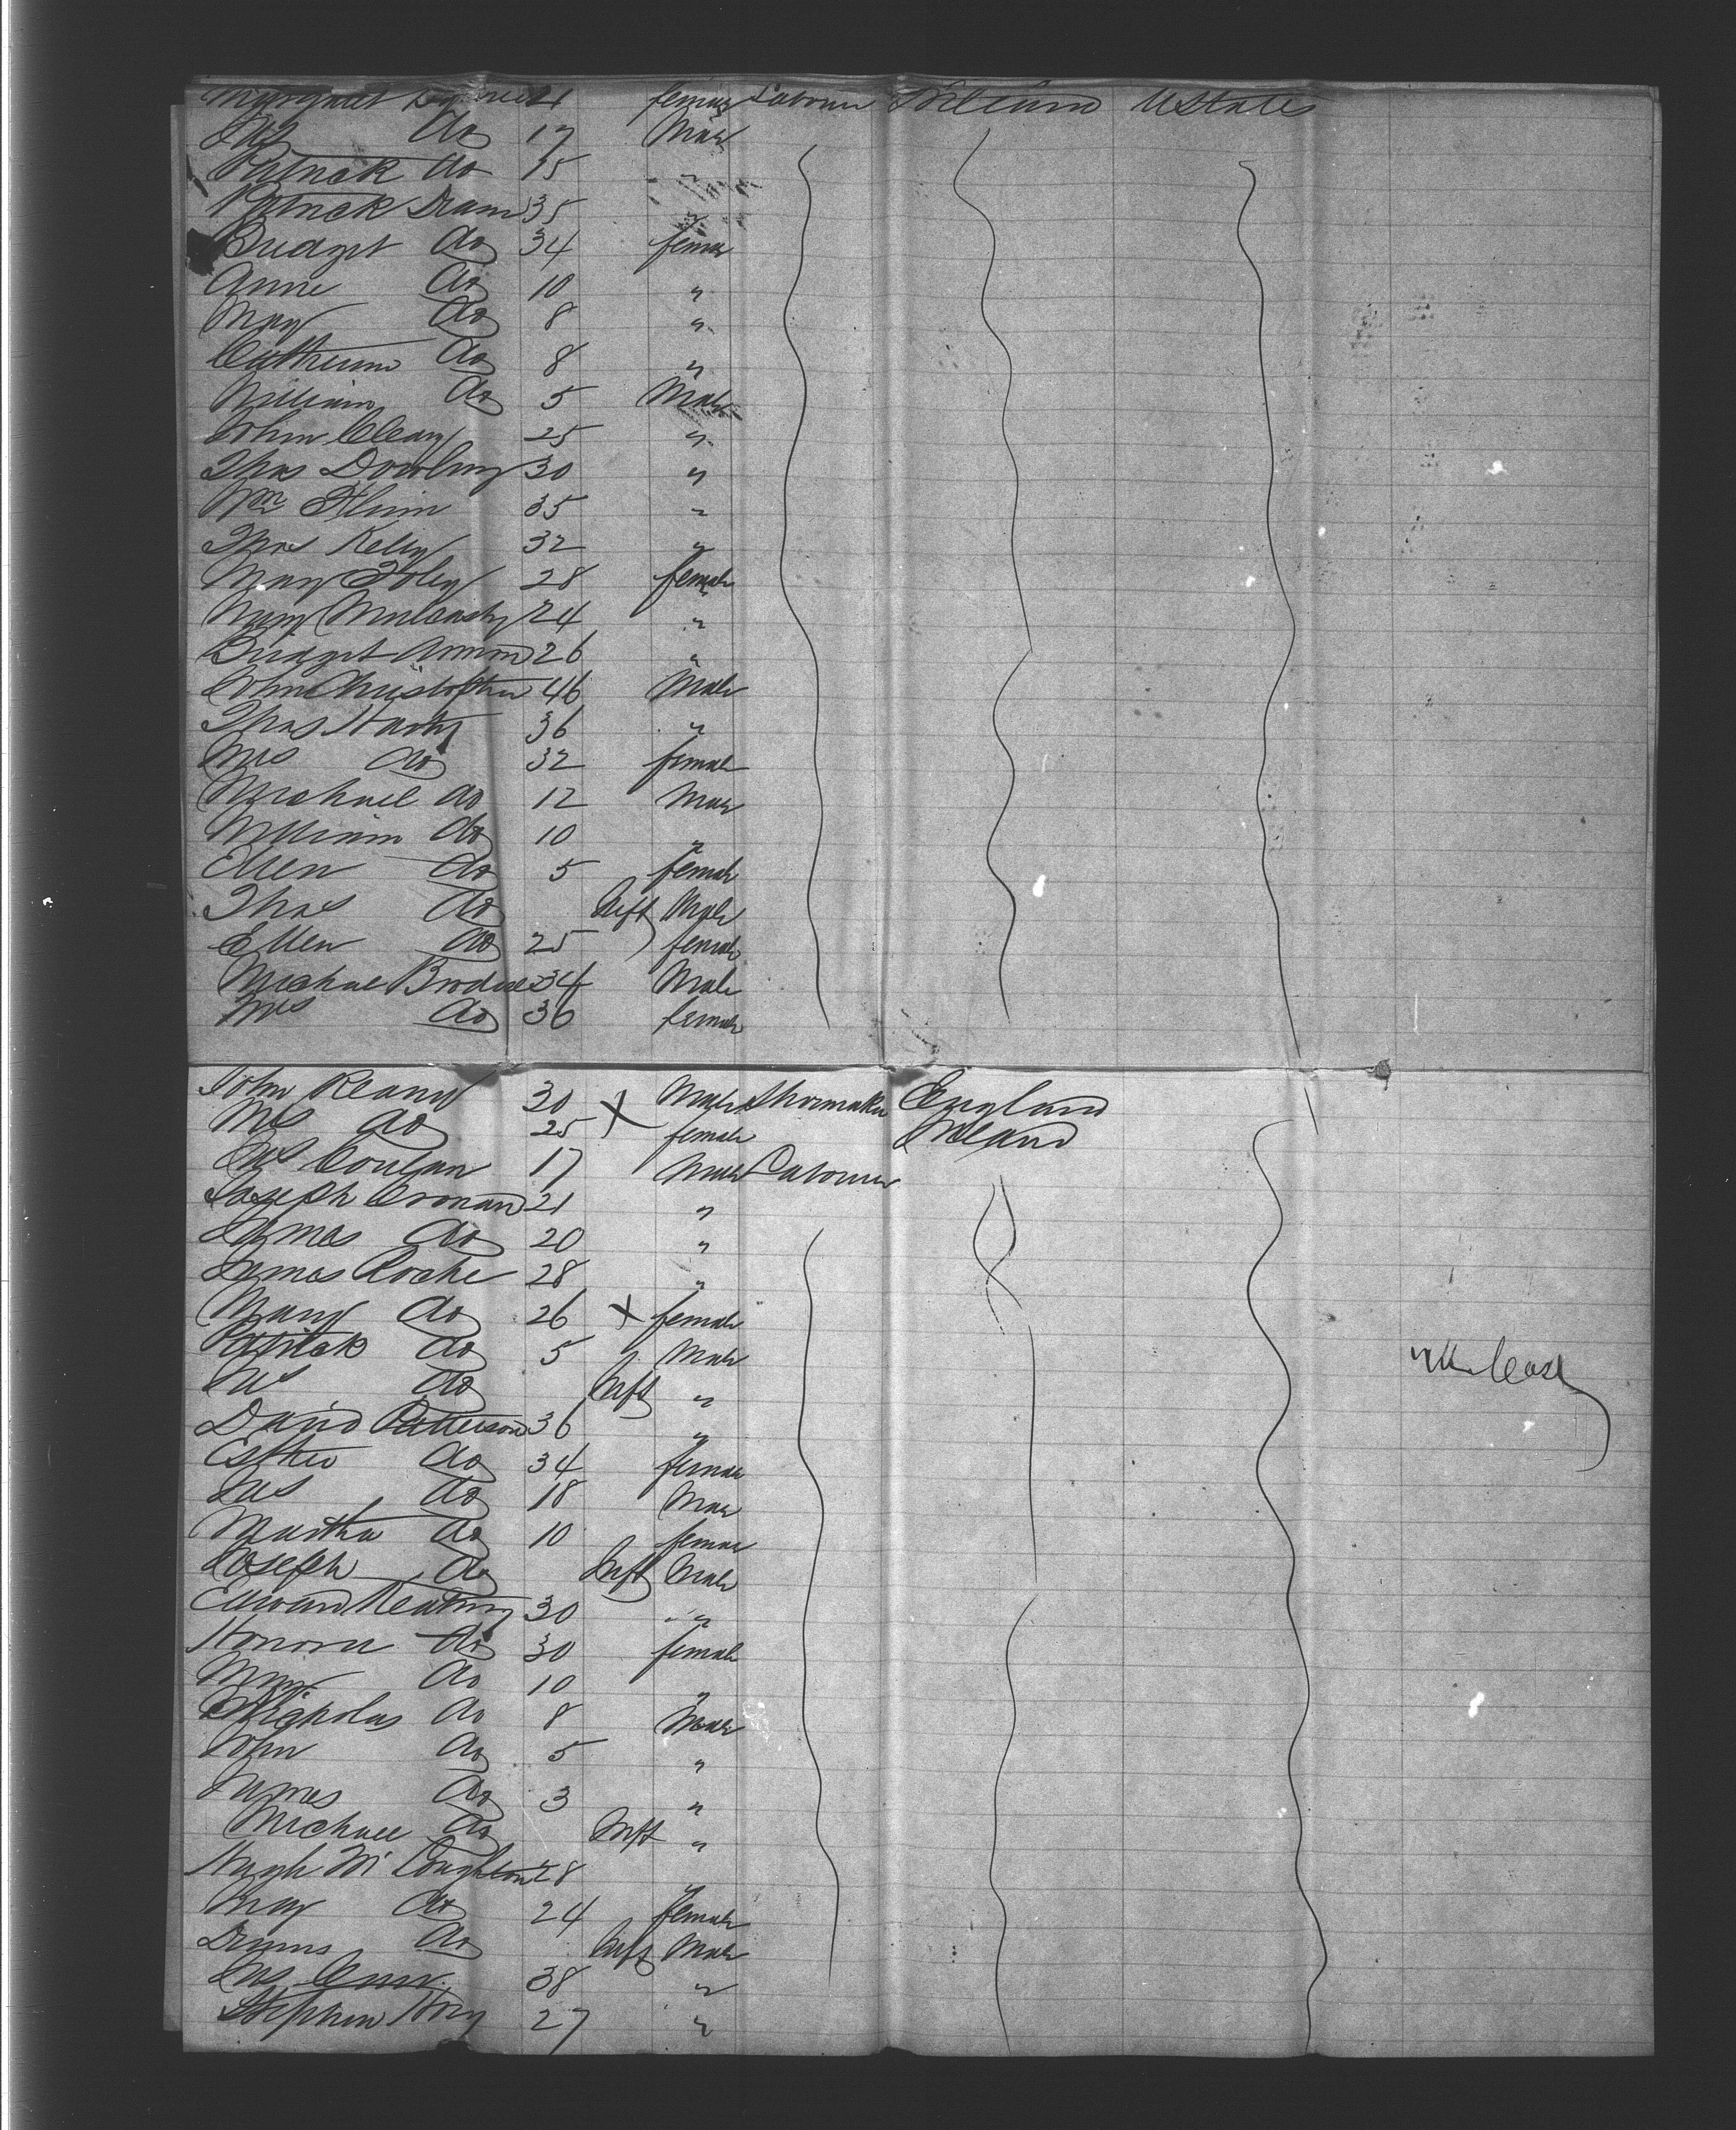 Margaret 21 female Labourer Ireland UStates
Jas do 17 Male
Patrick do 15 "
Patrick 35 "
Bridget do 34 female
Anne do 10 "
Mary do 8 "
Catherine do 8 "
William do 5 Male
John Cleary 25 "
Thos Dowling 30 "
Wm Flinn 35 "
Thos Kelly 32 "
Mary Foley 28 female
Mary 24 "
Bridget 26 "
John Christopher 46 Male
Thos Harty 36 "
Mrs do 32 female
Michael do 12 Male
William do 10 "
Ellen do 5 female
Thos do Inft Male
Ellen do 25 female
Michael 34 Male
Mrs do 36 female
John 30 X Male Shoemaker England
Mrs do 25 female Ireland
Jas 17 Male Labourer
Joseph Cronan 21 "
James do 20 "
James Roche 28 "
Mary do 26 X female
Patrick do 5 Male
Jas do Inft "
David Patterson 36 "
Esther do 34 female
Jas do 18 Male
Martha do 10 female
Joseph do Inft Male
Edward Keating 30 "
Honora do 30 female
Mary do 10 "
Nicholas do 8 Male
John do 5 "
James do 3 "
Michael do Inft "
Hugh Mc 28 "
Mary do 24 female
Dennis do Inft Male
Jas 38 "
Stephen 27 "